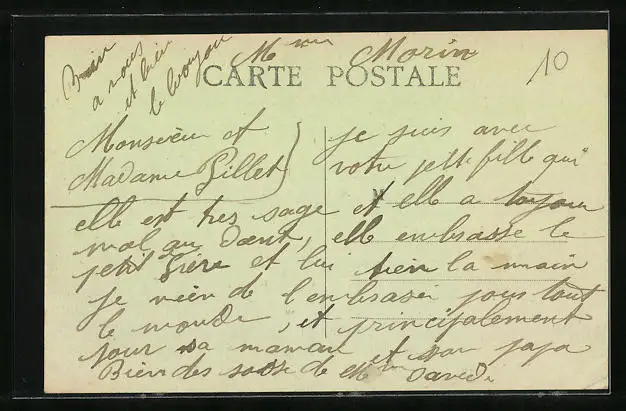 Mme Morin
CARTE POSTALE
10
a vous
et bien
le
Monsieur et
Madame Gillet
je suis avec
votre petite fille qui
elle est tres sage et elle a toujour
mal au Dent, elle enbrasse le
petit frère et lui tien la main
je vien de l enbrasé pour tout
le monde, et principalement
pour sa maman et son papa
Bien des de Mme